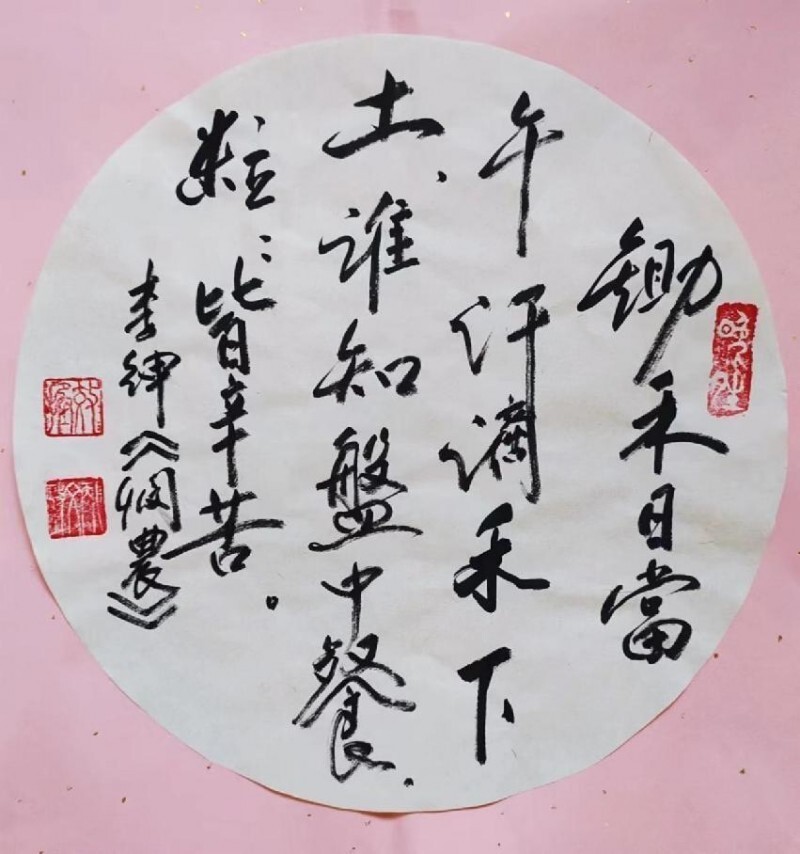 鋤禾日當
午汗滴禾下
土、谁知盤中餐.
粒〻皆辛苦。
李绅《悯農》